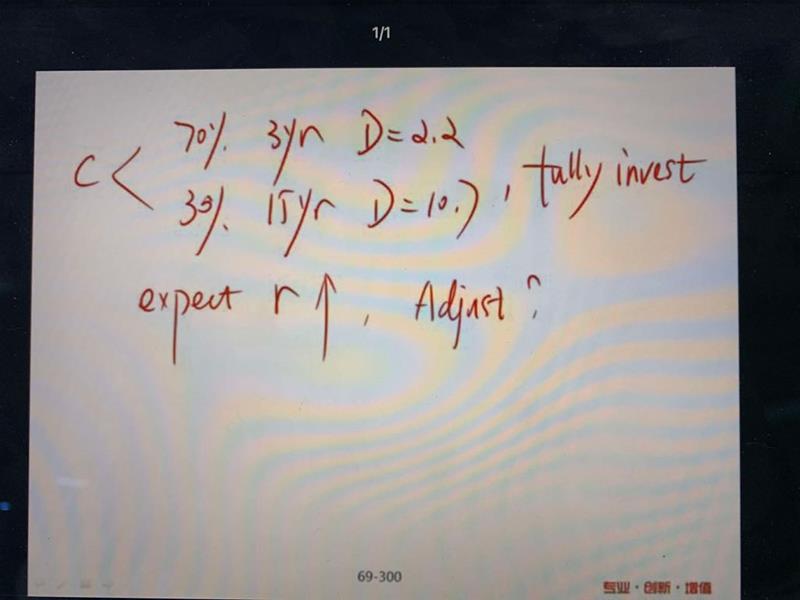 1/1
70% 3yr D=2.2
C <
30% 15yr D=10.7, fully invest
expect r↑, Adjust?
69-300
专业·创新·增值